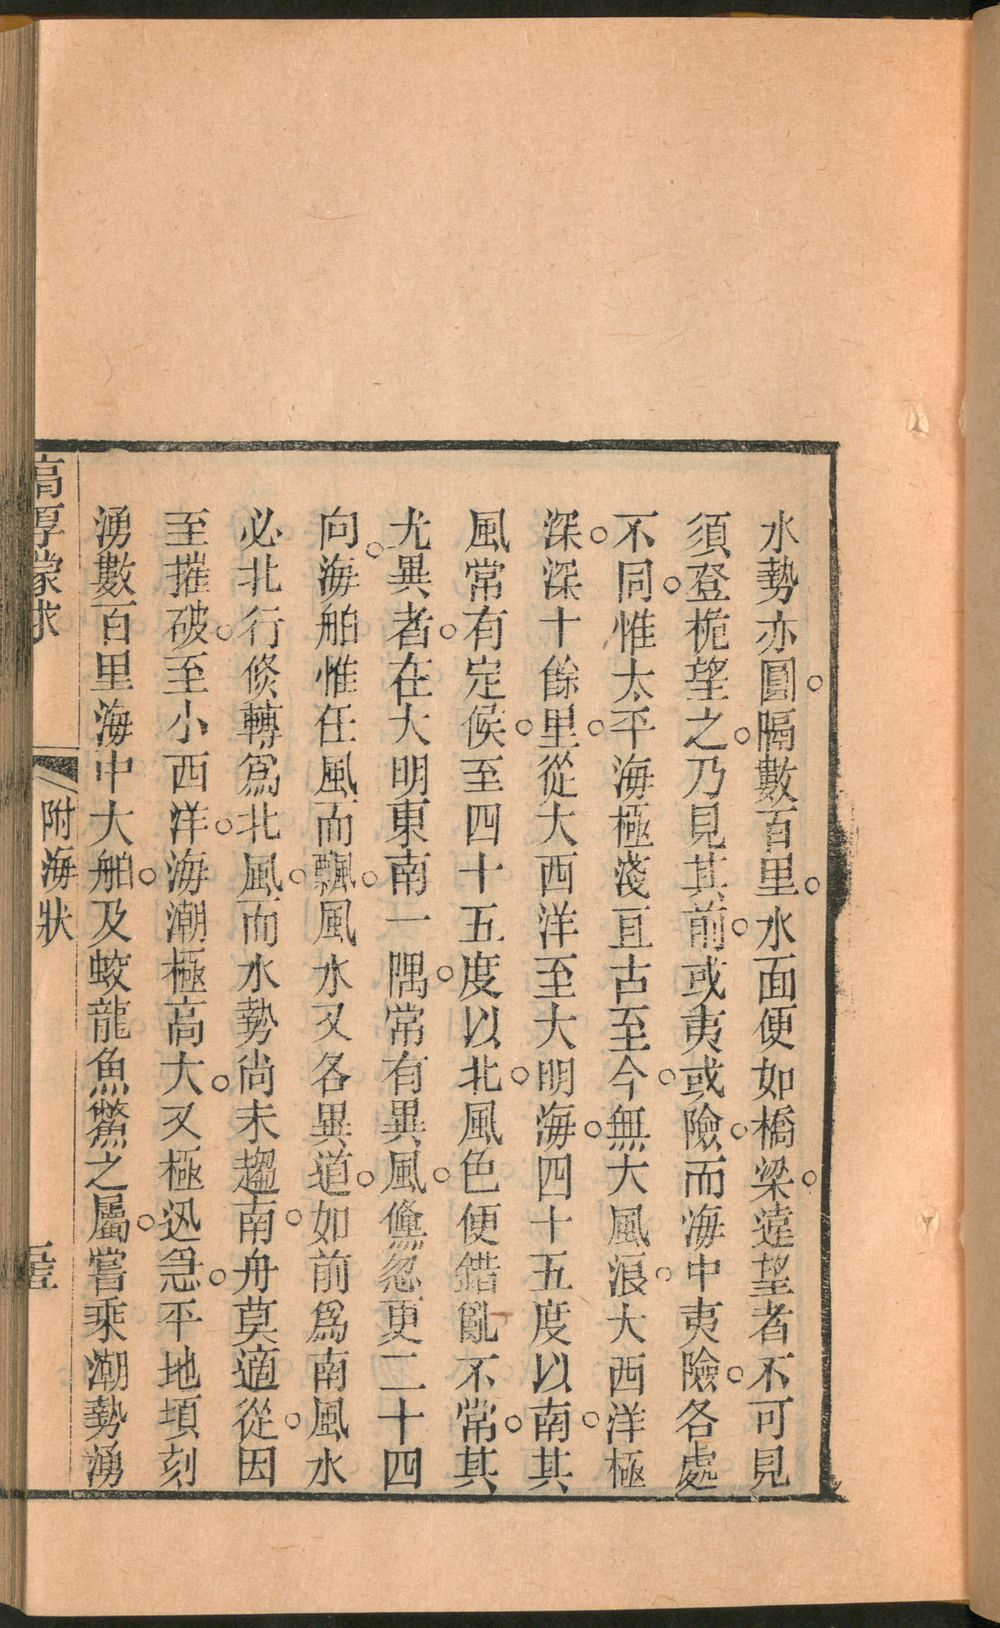 水勢亦圓。隔數百里。水面便如橋梁。遠望者不可見
須登桅望之。乃見其前。或夷或險。而海中夷險。各處
不同。惟太平海極淺。亘古至今。無大風浪。大西洋極
深。深十餘里。從大西洋至大明海。四十五度以南。其
風常有定候。至四十五度以北。風色便錯亂不常。其
尤異者。在大明東南一隅。常有異風。儵忽更二十四
向。海舶惟任風而飄。風水又各異道。如前爲南風水
必北行。倏轉爲北風。而水勢尚未趨南。舟莫適從。因
至摧破。至小西洋。海潮極高大。又極迅急。平地頃刻
湧數百里。海中大舶。及蛟龍魚鱉之屬。嘗乘潮勢湧
高厚蒙求
附海狀